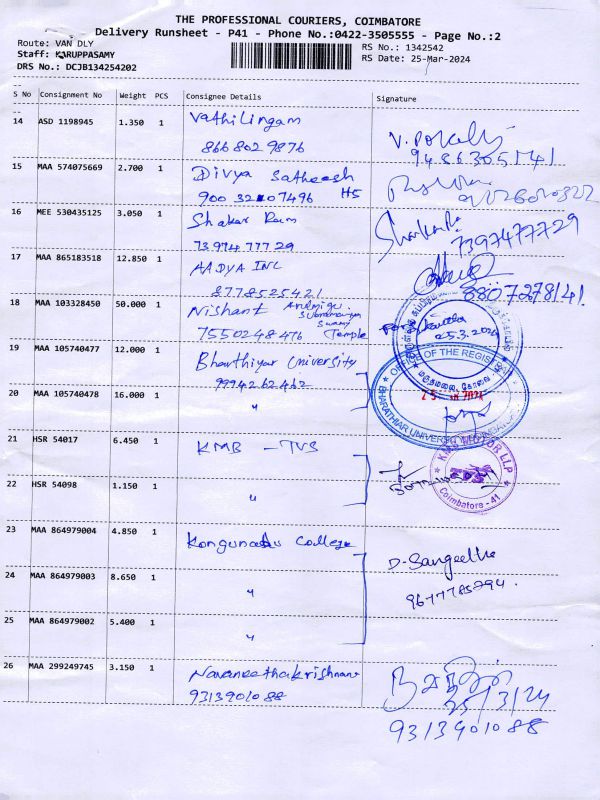 THE PROFESSIONAL COURIERS, COIMBATORE
Delivery Runsheet - P41 - Phone No.:0422-3505555 - Page No.:2
Route: VAN DLY
Staff: KARUPPASAMY
DRS No.: DCJB134254202
RS No.: 1342542
RS Date: 25-Mar-2024
S No Consignment No Weight PCS Consignee Details Signature
14 ASD 1198945 1.350 1 Vathilingam
866 802 9876
9486305141
15 MAA 574075669 2.700 1 Divya Satheesh
900 32 07496 H5
16 MEE 530435125 3.050 1 Shakar Ram
7397477729
7397477729
17 MAA 865183518 12.850 1 AADYA INC
8778525421
8807278141
18 MAA 103328450 50.000 1 Nishant Arulmigu
Subramanya
Swamy
7550248476 Temple
25.3.2024
19 MAA 105740477 12.000 1 Bharthiyar University
9994262462
OFFICE OF THE REGISTRAR
மருதமலை, கோவை
20 MAA 105740478 16.000 1 "
BHARATHIAR UNIVERSITY
21 HSR 54017 6.450 1 KMB - TVS
KMB MOTOR LLP
Coimbatore - 41
22 HSR 54098 1.150 1 "
23 MAA 864979004 4.850 1 Kongunadu College
D. Sangeetha
9677785294
24 MAA 864979003 8.650 1 "
25 MAA 864979002 5.400 1 "
26 MAA 299249745 3.150 1 Navaneethakrishnan
9313901088
25/3/24
9313901088